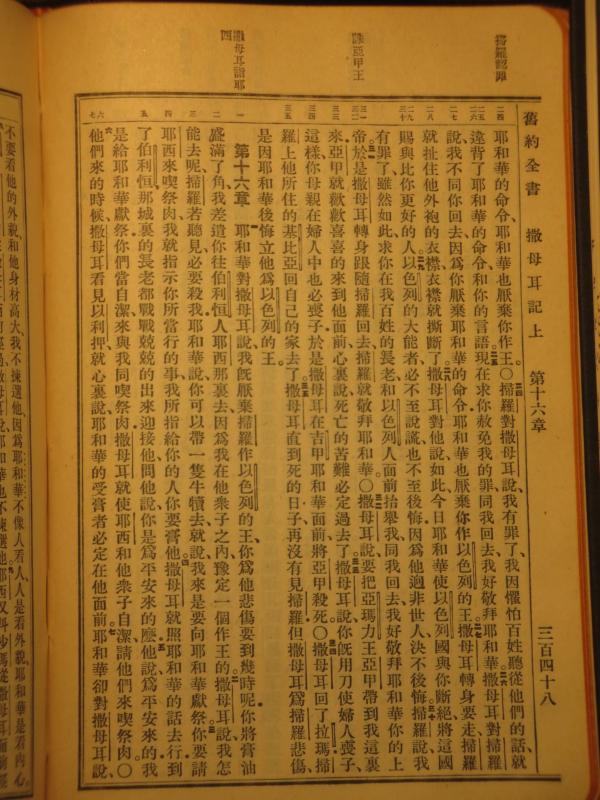 掃羅認罪
誅亞甲王
撒母耳詣耶西
舊約全書 撒母耳記上 第十六章 三百四十八
耶和華的命令、耶和華也厭棄你作王。〇掃羅對撒母耳說、我有罪了、我因懼怕百姓、聽從他們的話、就
違背了耶和華的命令、和你的言語、現在求你赦免我的罪、同我回去、我好敬拜耶和華。撒母耳對掃羅
說、我不同你回去、因爲你厭棄耶和華的命令、耶和華也厭棄你作以色列的王。撒母耳轉身要走、掃羅
就扯住他外袍的衣襟、衣襟就撕斷了。撒母耳對他說、如此今日耶和華使以色列國與你斷絕、將這國
賜與比你更好的人。以色列的大能者必不至說謊、也不至後悔、因爲他迥非世人、決不後悔。掃羅說、我
有罪了、雖然如此、求你在我百姓的長老和以色列人面前抬舉我、同我回去、我好敬拜耶和華你的上
帝。於是撒母耳轉身跟隨掃羅回去、掃羅就敬拜耶和華。〇撒母耳說、要把亞瑪力王亞甲帶到我這裏
來、亞甲就歡歡喜喜的來到他面前、心裏說、死亡的苦難必定過去了。撒母耳說、你旣用刀使婦人喪子、
這樣、你母親在婦人中也必喪子、於是撒母耳在吉甲耶和華面前將亞甲殺死。〇撒母耳回了拉瑪、掃
羅上他所住的基比亞、回自己的家去了。撒母耳直到死的日子、再沒有見掃羅、但撒母耳爲掃羅悲傷、
是因耶和華後悔立他爲以色列的王。
第十六章 耶和華對撒母耳說、我旣厭棄掃羅作以色列的王、你爲他悲傷要到幾時呢、你將膏油
盛滿了角、我差遣你往伯利恒人耶西那裏去、因爲我在他衆子之內、豫定一個作王的。撒母耳說、我怎
能去呢、掃羅若聽見、必要殺我、耶和華說、你可以帶一隻牛犢去、就說、我來是要向耶和華獻祭。你要請
耶西來喫祭肉、我就指示你所當行的事、我所指給你的人、你要膏他。撒母耳就照耶和華的話去行、到
了伯利恒、那城裏的長老都戰戰兢兢的出來迎接他、問他說、你是爲平安來的麽。他說、爲平安來的、我
是給耶和華獻祭、你們當自潔、來與我同喫祭肉、撒母耳就使耶西和他衆子自潔、請他們來喫祭肉。〇
他們來的時候、撒母耳看見以利押、就心裏說、耶和華的受膏者必定在他面前。耶和華卻對撒母耳說、
不要看他的外貌、和他身材高大、我不揀選他、因爲耶和華不像人看人、人是看外貌、耶和華是看內心。